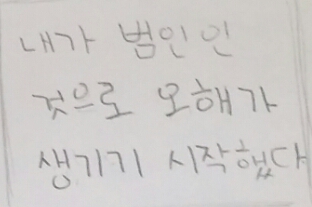 내가 범인인
것으로 오해가
생기기 시작했다